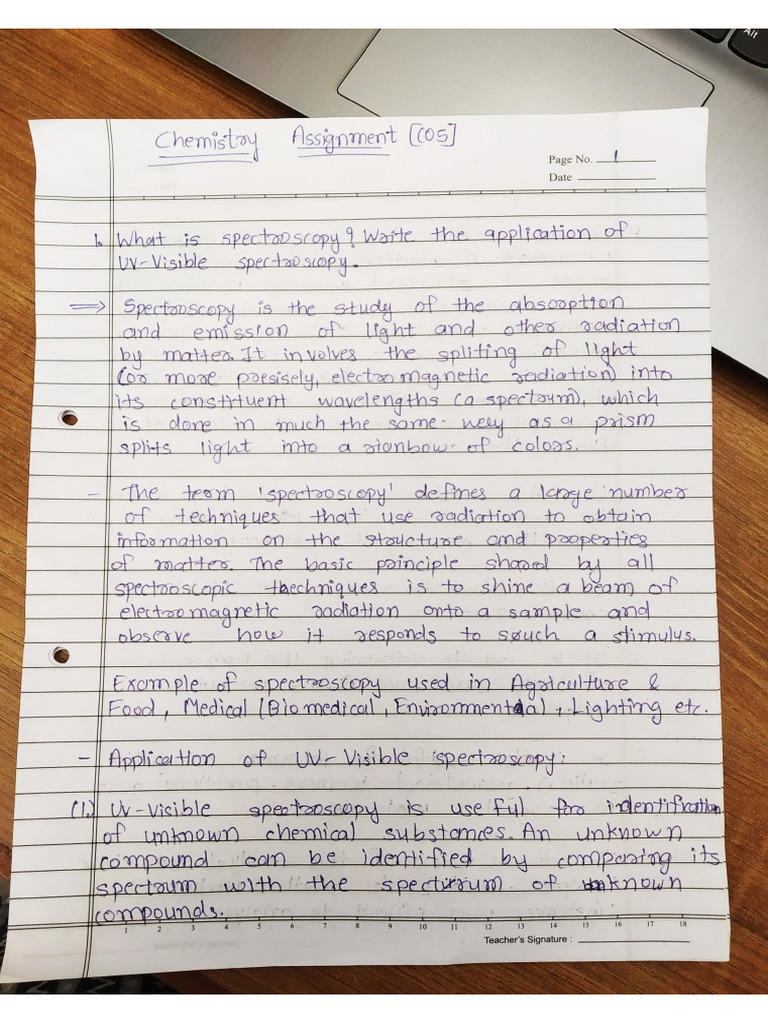 Alt
Chemistry Assignment [C05]
Page No. 1
Date
1. What is spectroscopy? Write the application of
UV-Visible spectroscopy.
⇒ Spectroscopy is the study of the absorption
and emission of light and other radiation
by matter. It involves the spliting of light
(or more presisely, electromagnetic radiation) into
its constituent wavelengths (a spectrum), which
is done in much the same way as a prism
splits light into a rionbow of colors.
- The term 'spectroscopy' defines a large number
of techniques that use radiation to obtain
information on the structure and properties
of matter. The basic principle shared by all
spectrooscopic thechniques is to shine a beam of
electromagnetic radiation onto a sample and
observe how it responds to such a stimulus.
Example of spectroscopy used in Agriculture &
Food, Medical (Biomedical, Environmental, Lighting etc.
- Application of UV-Visible spectroscopy:
(1.) UV-Vicible spectroscopy is useful for identification
of unknown chemical substances. An unknown
compound can be identified by comparing its
spectrum with the specturum of known
compounds.
1 2 3 4 5 6 7 8 9 10 11 12 13 14 15 16 17 18
Teacher's Signature :